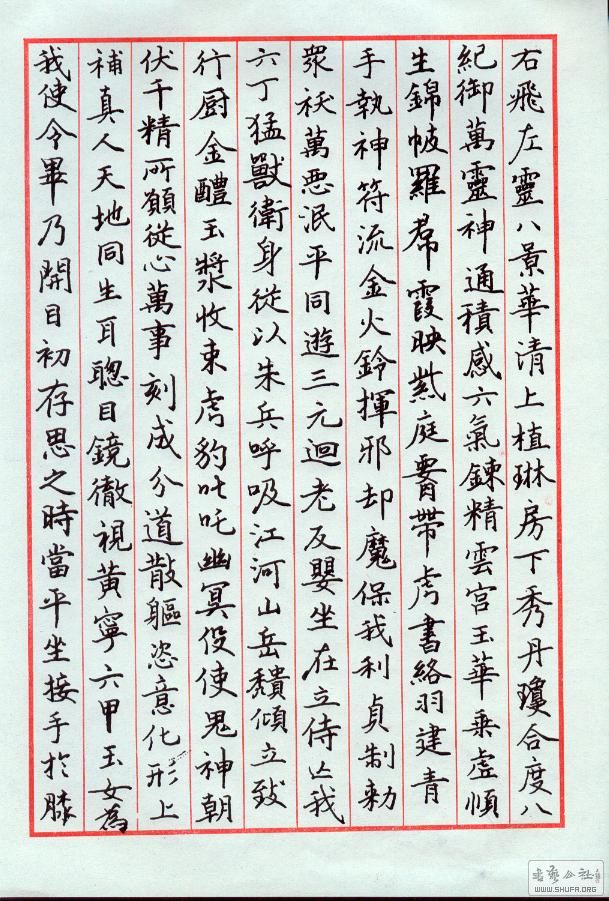 右飛左靈八景華清上植琳房下秀丹瓊合度八
紀御萬靈神通積感六氣鍊精雲宮玉華乘虛順
生錦帔羅帬霞映紫庭腰帶虎書絡羽建青
手執神符流金火鈴揮邪却魔保我利貞制勅
眾袄萬惡泯平同遊三元迴老反嬰坐在立侍亾我
六丁猛獸衛身從以朱兵呼吸江河山岳穨傾立致
行厨金醴玉漿收束虎豹叱吒幽冥役使鬼神朝
伏千精所願從心萬事刻成分道散軀恣意化形上
補真人天地同生耳聰目鏡徹視黃寧六甲玉女為
我使令畢乃開目初存思之時當平坐接手於膝
WWW.SHUFA.ORG